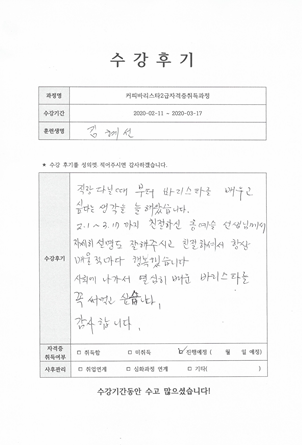 수강후기
과정명 커피바리스타2급자격증취득과정
수강기간 2020-02-11 ~ 2020-03-17
훈련생명 김혜선
★ 수강 후기를 정의껏 적어주시면 감사하겠습니다.
수강후기
직장 다닐때 부터 바리스타를 배우고
싶다는 생각을 늘 해왔습니다.
2.1 ~ 3.17 까지 친절하신 선생님께서
자세히 설명도 잘해주시고 친절하셔서 항상
배울때마다 행복했습니다
사회에 나가서 열심히 배운 바리스타를
꼭 써먹고 싶습니다.
감사합니다.
자격증 취득여부 □ 취득함 □ 미취득 ☑ 진행예정 ( 월 일 예정)
사후관리 □ 취업연계 □ 심화과정 연계 □ 기타( )
수강기간동안 수고 많으셨습니다!